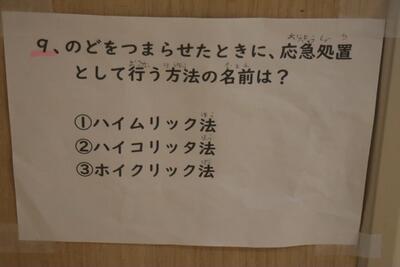 9、のどをつまらせたときに、応急処置
として行う方法の名前は？
①ハイムリック法
②ハイコリッタ法
③ホイクリック法